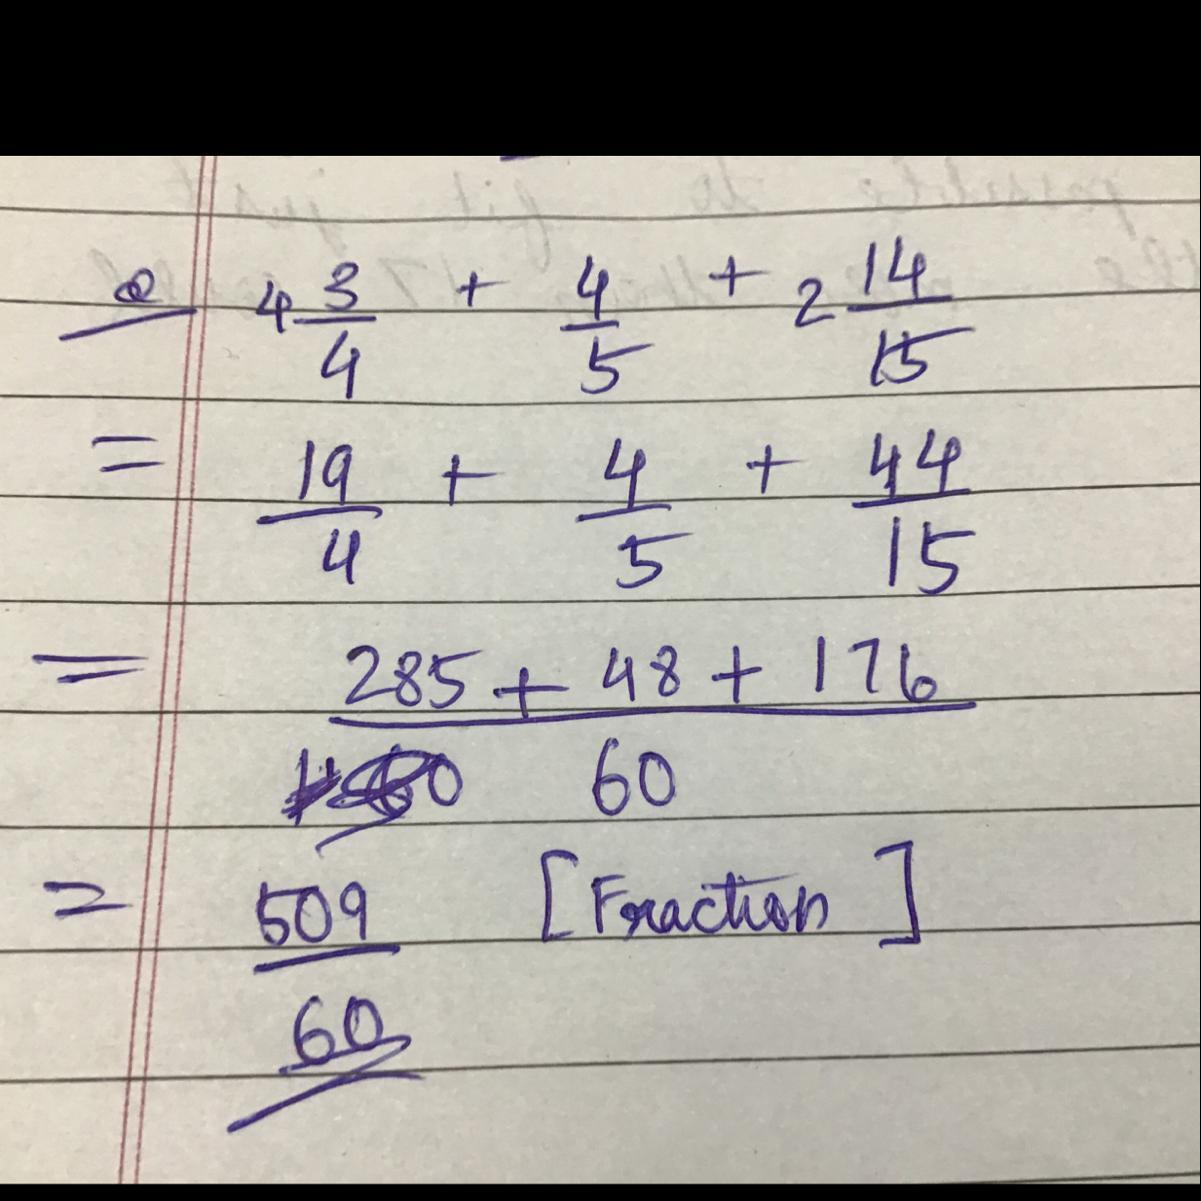 Q 4 3/4 + 4/5 + 2 14/15
= 19/4 + 4/5 + 44/15
= 285 + 48 + 176
60
= 509/60 [Fraction]